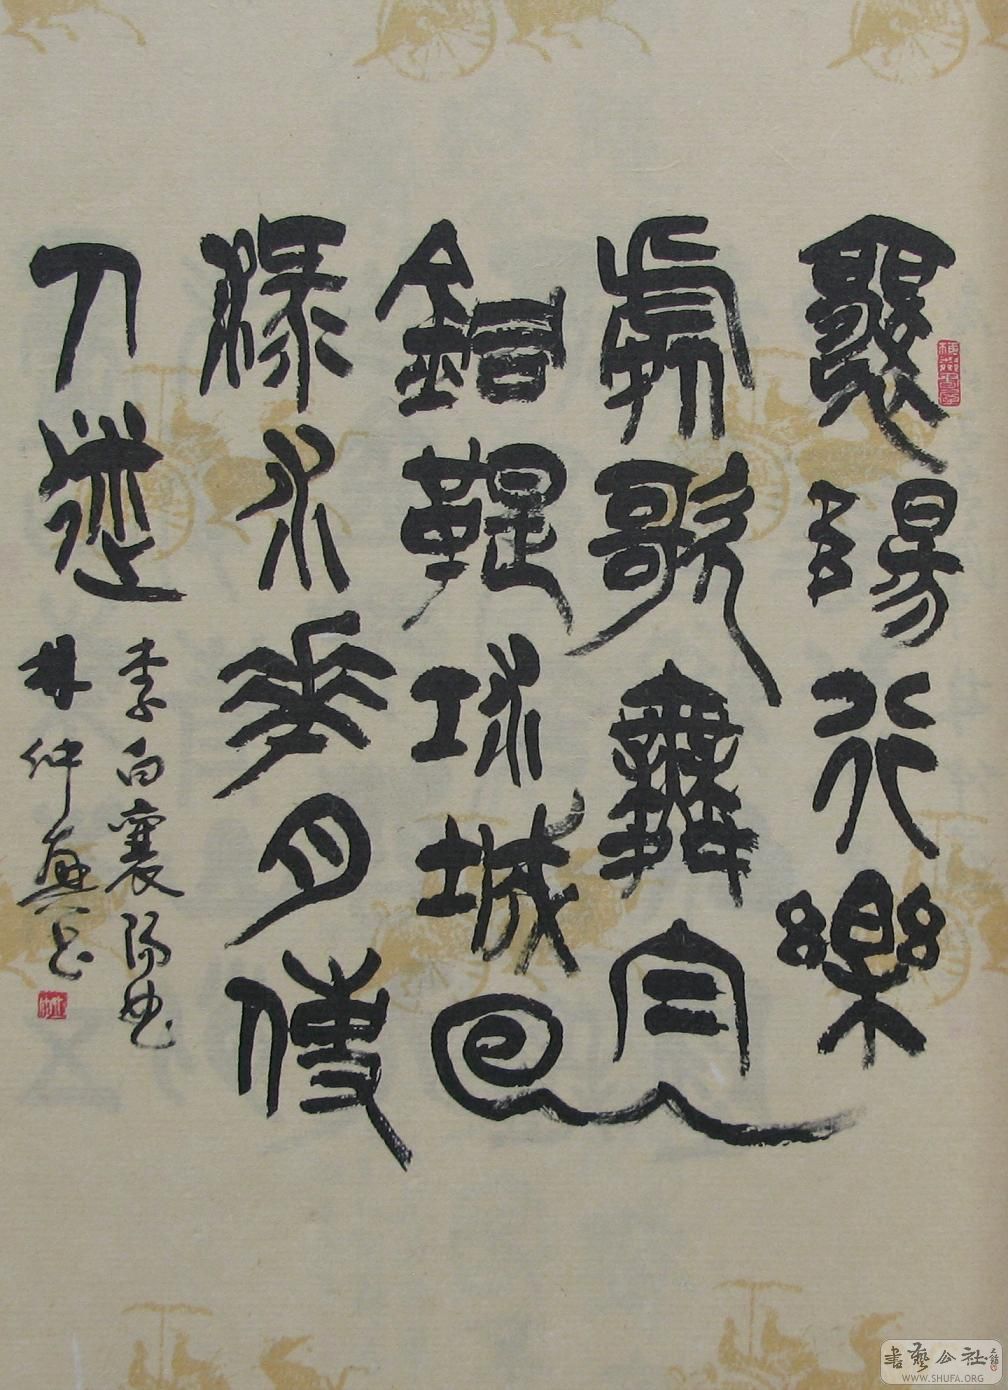 襄陽行樂
處歌舞白
銅鞮江城回
淥水花月使
人迷
李白襄陽曲
林仲興书
書藝公社
WWW.SHUFA.ORG